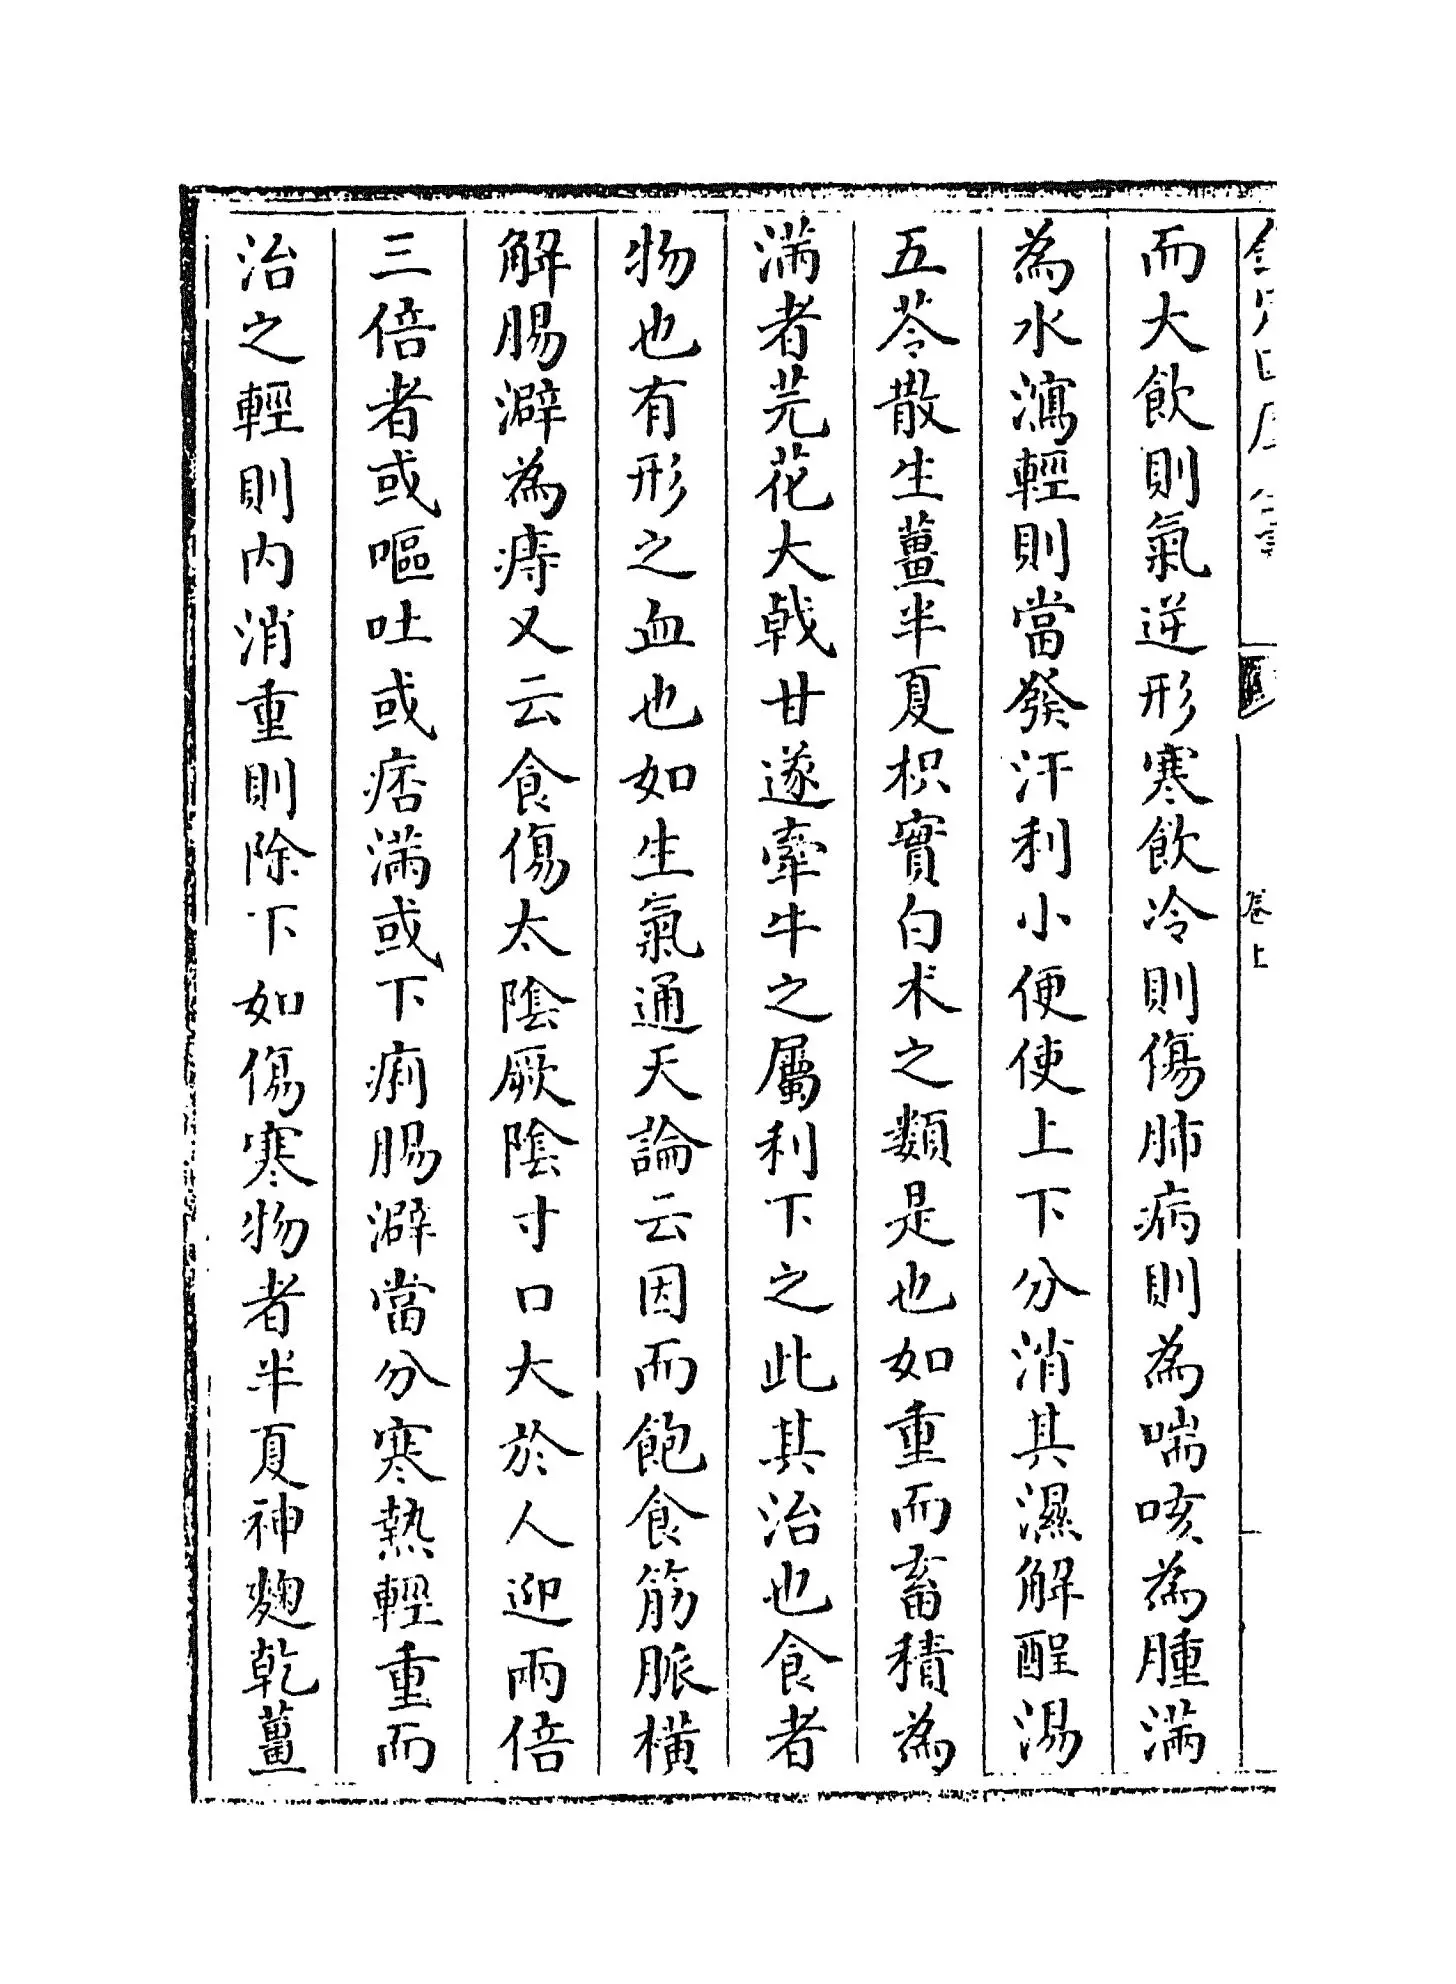 而大飲則氣逆形寒飲冷則傷肺病則為喘咳為腫滿
為水瀉輕則當發汗利小便使上下分消其濕解酲湯
五苓散生薑半夏枳實白术之類是也如重而畜積為
滿者芫花大戟甘遂牽牛之屬利下之此其治也食者
物也有形之血也如生氣通天論云因而飽食筋脈橫
解腸澼為痔又云食傷太陰厥陰寸口大於人迎兩倍
三倍者或嘔吐或痞滿或下痢腸澼當分寒熱輕重而
治之輕則內消重則除下如傷寒物者半夏神麴乾薑
卷上